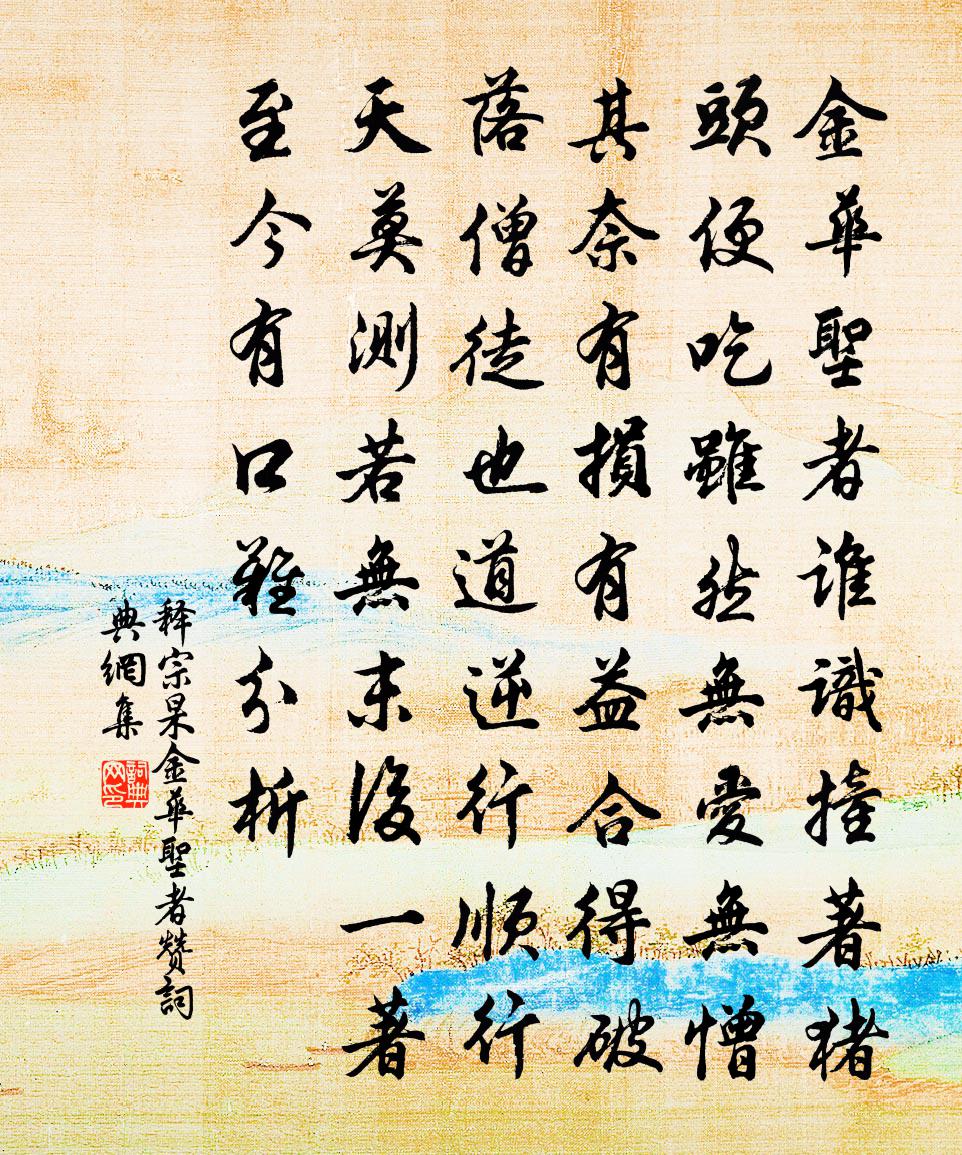 金華聖者誰識撞著猪
頭便吃雖然無愛無憎
其奈有損有益合得破
落僧徒也道逆行順行
天莫測若無末後一著
至今有口難分析
释宗杲金華聖者赞詞
典網集
詞典
网印